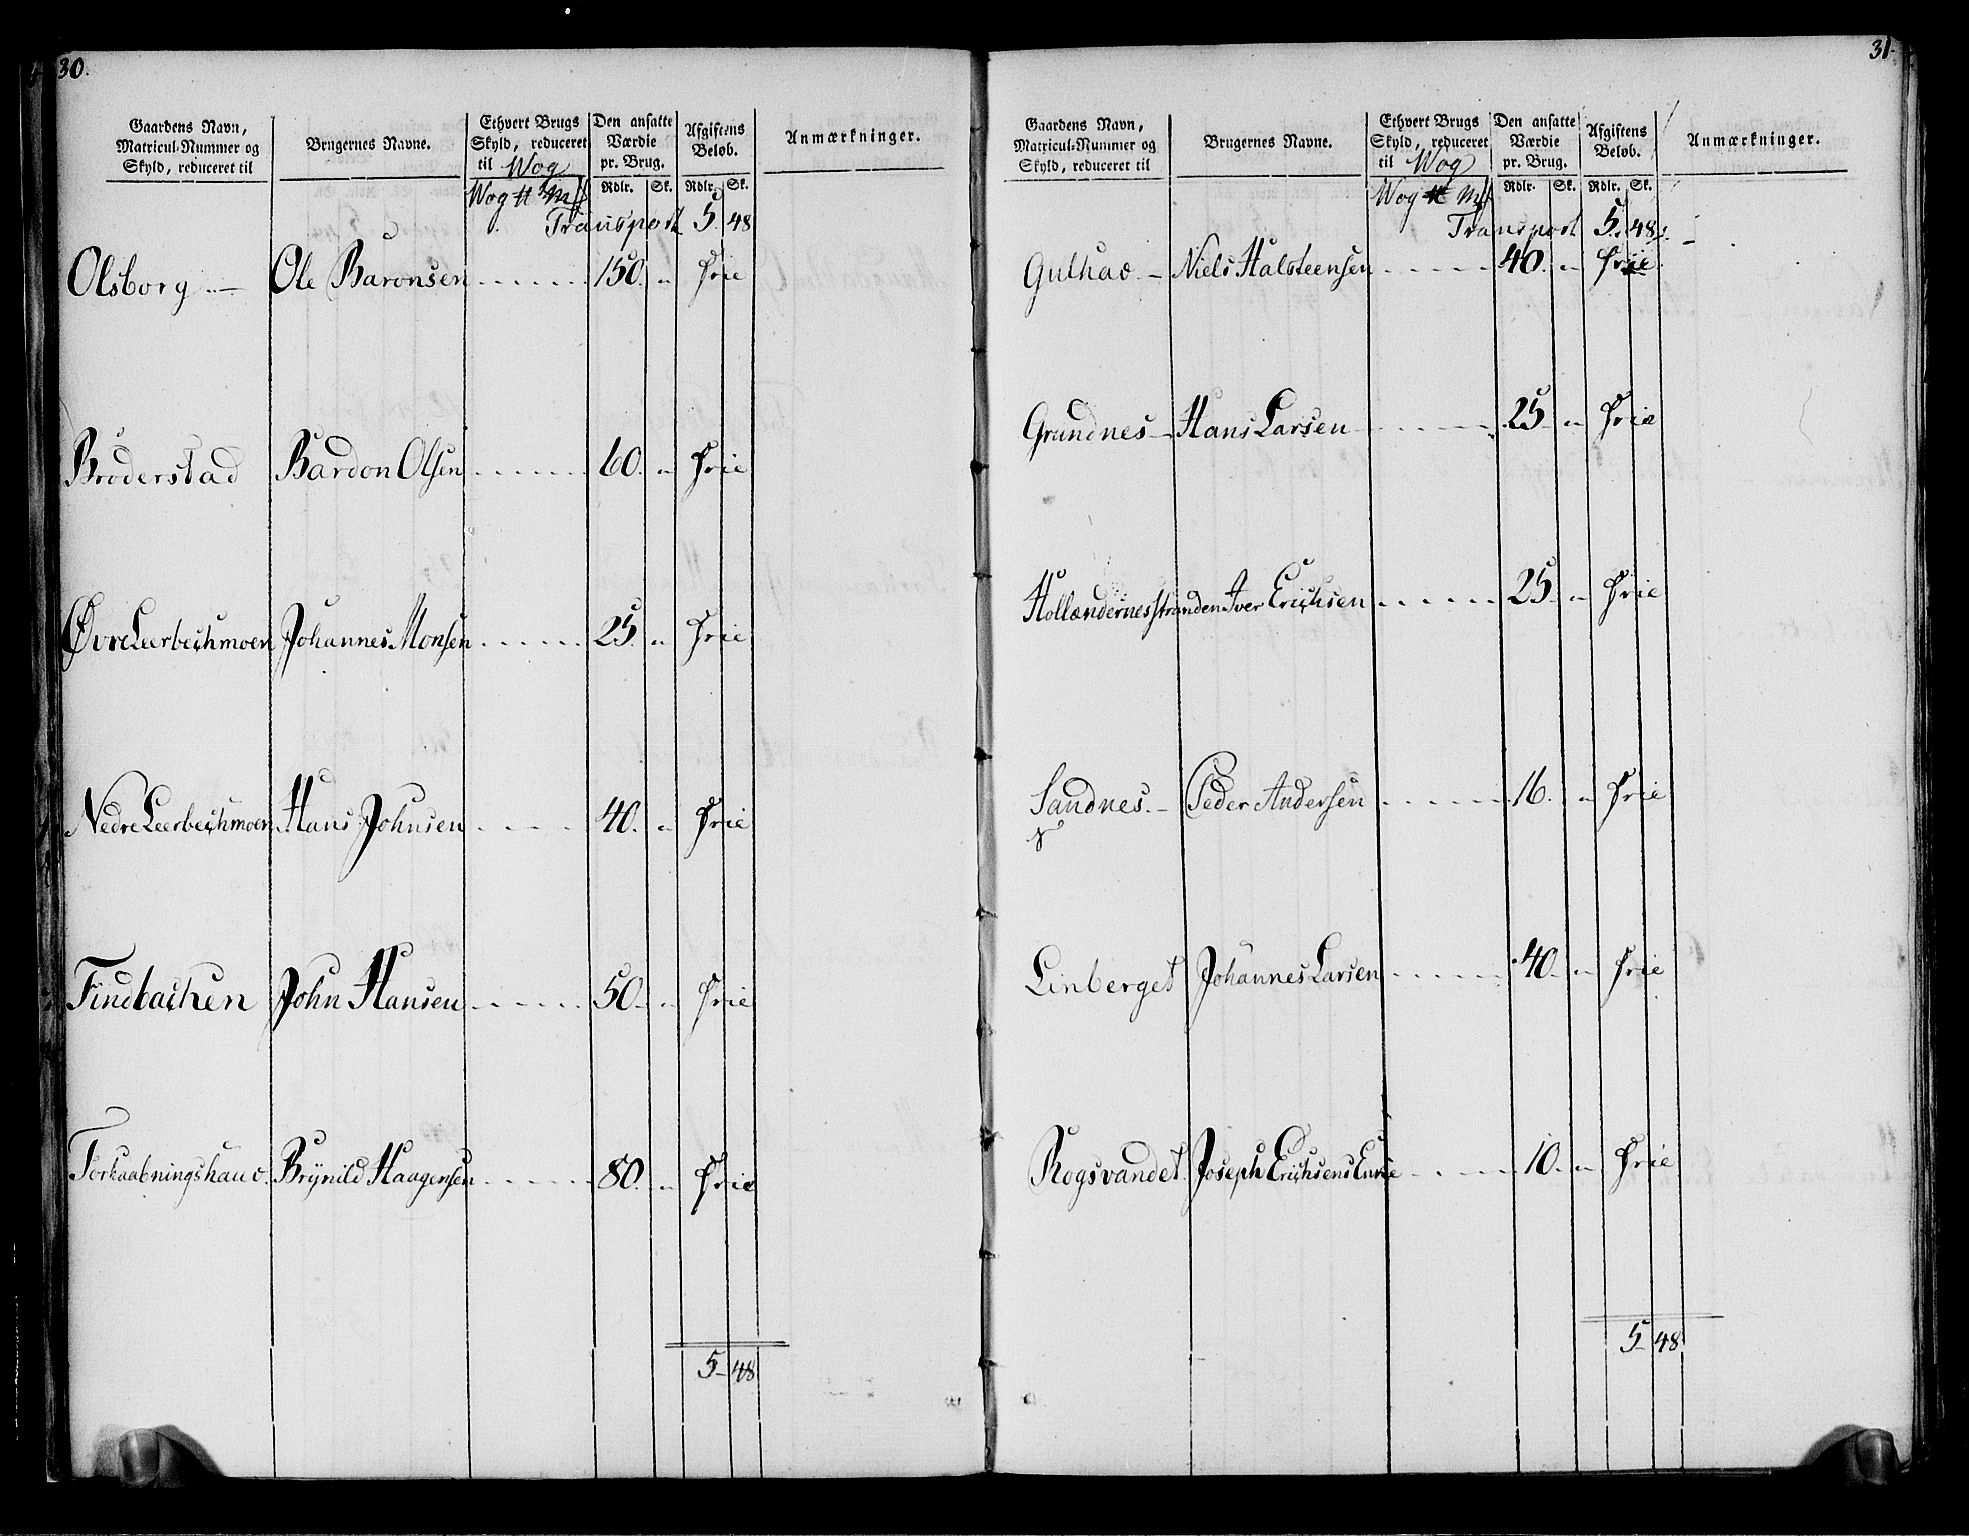 30.
Gaardens Navn, Matricul-Nummer og Skyld, reduceret til
Brugernes Navne.
Ethvert Brugs Skyld, reduceret til Wog
Den ansatte Værdie pr. Brug.
Afgiftens Beløb.
Anmærkninger.
Wog ℔ Mk Rdlr. Sk. Rdlr. Sk.
Transport 5. 48
Olsborg Ole Baronsen 150. „ Frie
Broderstad Bardon Olsen 60. „ Frie
Øvre Leerbechmoen Johannes Monsen 25. „ Frie
Nedre Leerbechmoen Hans Johnsen 40. „ Frie
Findbachen John Hansen 50. „ Frie
Forkaabningshaug Brynild Haagensen 80. „ Frie
5 48
31.
Gaardens Navn, Matricul-Nummer og Skyld, reduceret til
Brugernes Navne.
Ethvert Brugs Skyld, reduceret til Wog
Den ansatte Værdie pr. Brug.
Afgiftens Beløb.
Anmærkninger.
Wog ℔ Mk Rdlr. Sk. Rdlr. Sk.
Transport 5. 48
Gulhav Niels Halsteensen 40. „ Frie
Grundnes Hans Larsen 25 „ Frie
Hollændernesstranden Iver Erichsen 25 „ Frie
Sandnes Peder Andersen 16. „ Frie
Linberget Johannes Larsen 40. „ Frie
Rogsvandet Joseph Erichsens Enke 10. „ Frie
5 48